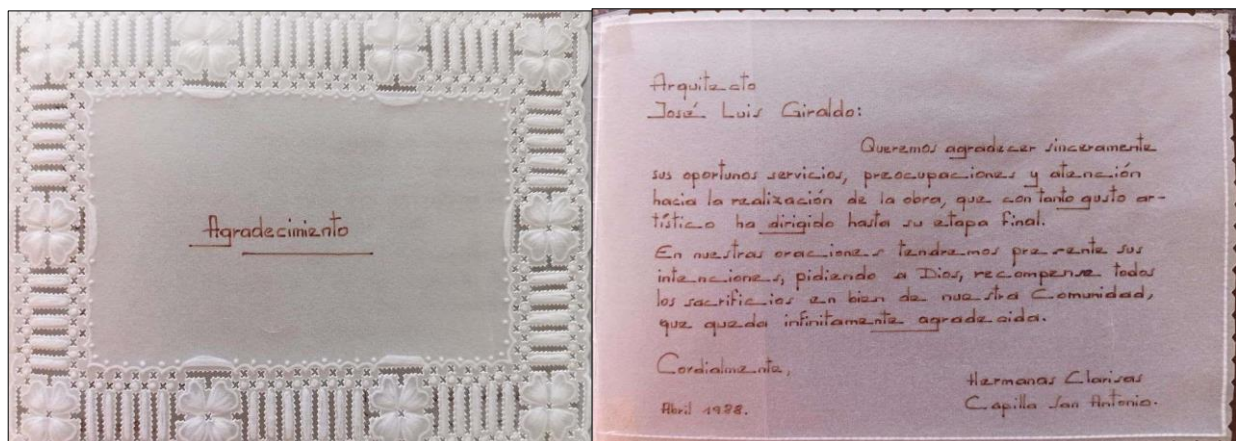 Agradecimiento
Arquitecto
José Luis Giraldo:
Queremos agradecer sinceramente
sus oportunos servicios, preocupaciones y atención
hacia la realización de la obra, que con tanto gusto ar-
tístico ha dirigido hasta su etapa final.
En nuestras oraciones tendremos presente sus
intenciones, pidiendo a Dios, recompense todos
los sacrificios en bien de nuestra Comunidad,
que queda infinitamente agradecida.
Cordialmente,
Hermanas Clarisas
Capilla San Antonio.
Abril 1988.